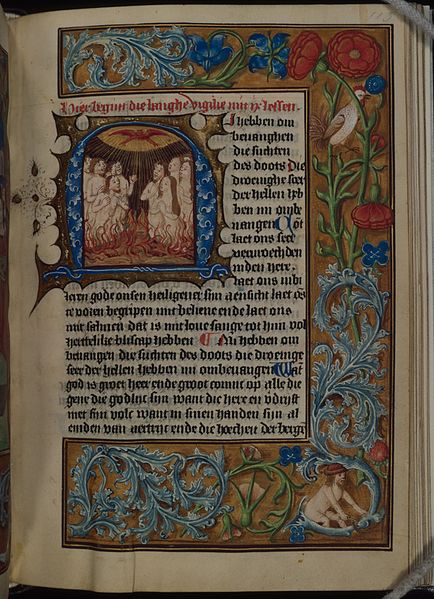 Hier begint die langhe vigilie mit ix lessen.
i hebben om
bevanghen
die suchten
des doots Die
droevighe seer
der hellen heb
ben mi ombe
vangen Cõt
laet ons seer
vervroechden
inden here.
laet ons iubi
leren gode onsen heiligen
re voren begripen mit beliene ende laet ons
mit salmen dat is mit love sange tot him vol
hertelike bliscap hebben Mi hebben om
bevangen die suchten des doots die drovige
seer der hellen hebben mi ombevangen Wat
god is groet here ende groot connic op alle die
gene die godlic sin want die here en
met sin volc want in sinen handen sijn al
einden van ende die hoechen der berge